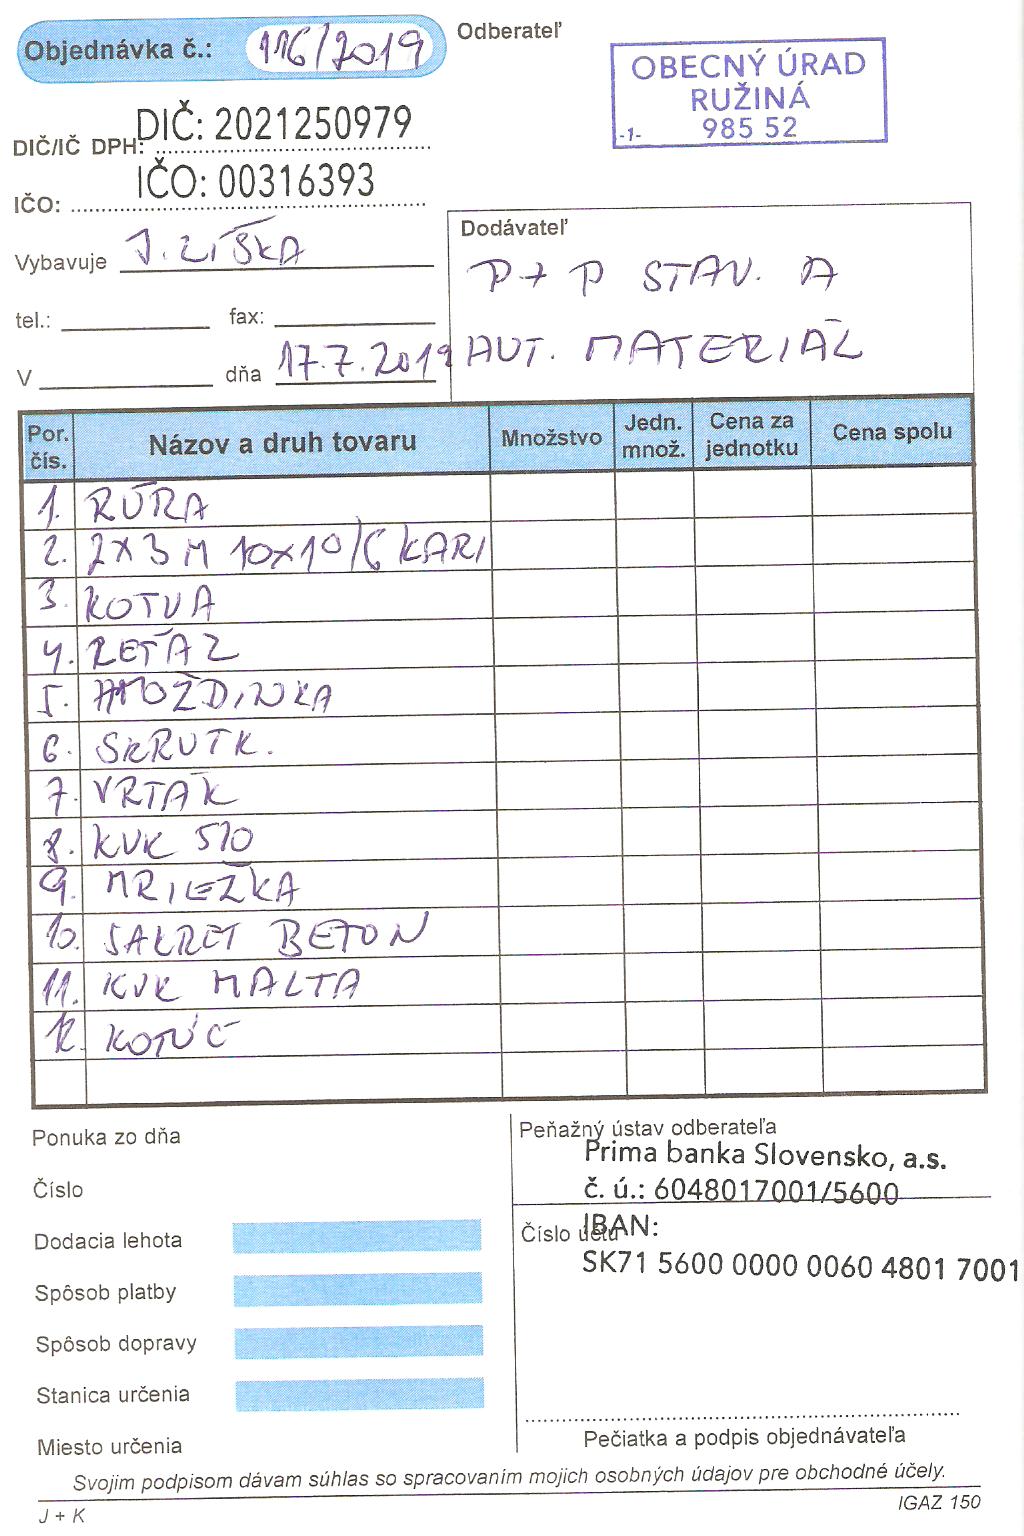 Objednávka č.: 116/2019
Odberateľ
OBECNÝ ÚRAD
RUŽINÁ
-1- 985 52
DIČ/IČ DPH: DIČ: 2021250979
IČO: IČO: 00316393
Vybavuje J. ZIŠKA
tel.: fax:
V dňa 17.7.2019
Dodávateľ
P+P STAV. A
AUT. MATERIÁL
Por. čís. Názov a druh tovaru Množstvo Jedn. množ. Cena za jednotku Cena spolu
1. RÚRA
2. 2X3 M 10X10/6 KARI
3. KOTVA
4. REŤAZ
5. HMOŽDINKA
6. SKRUTK.
7. VRTÁK
8. KVK 510
9. MRIEŽKA
10. SAKRET BETON
11. KVK MALTA
12. KOTÚČ
Ponuka zo dňa
Číslo
Dodacia lehota
Spôsob platby
Spôsob dopravy
Stanica určenia
Miesto určenia
Peňažný ústav odberateľa
Prima banka Slovensko, a.s.
č. ú.: 6048017001/5600
Číslo účtu IBAN:
SK71 5600 0000 0060 4801 7001
Pečiatka a podpis objednávateľa
Svojim podpisom dávam súhlas so spracovaním mojich osobných údajov pre obchodné účely.
J + K
IGAZ 150